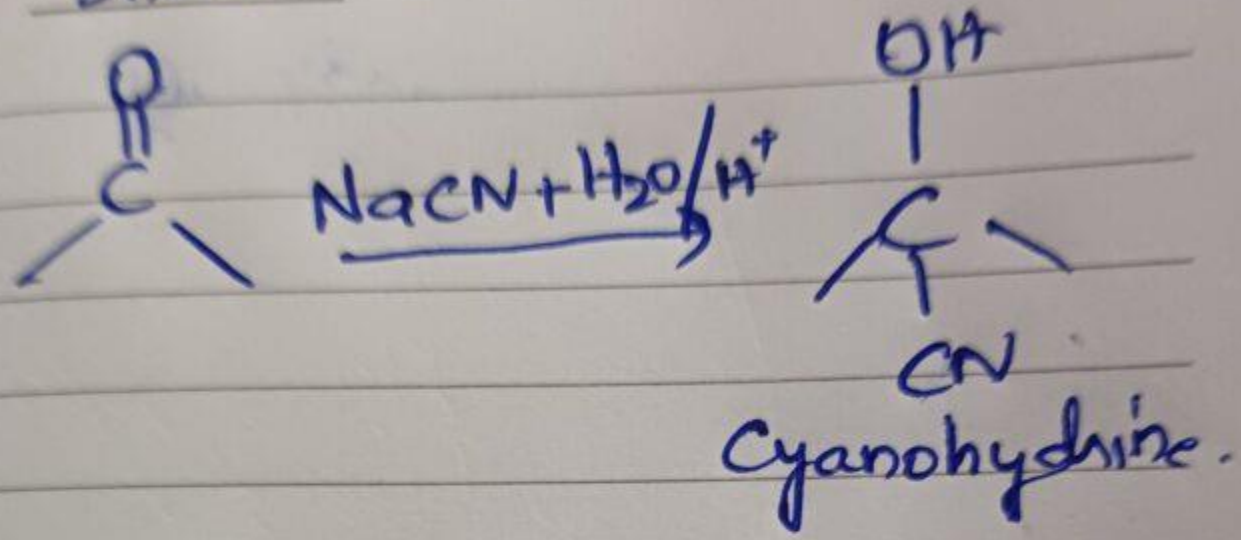 O
OH
C
NaCN+H₂O/H⁺
C
CN
Cyanohydrine.